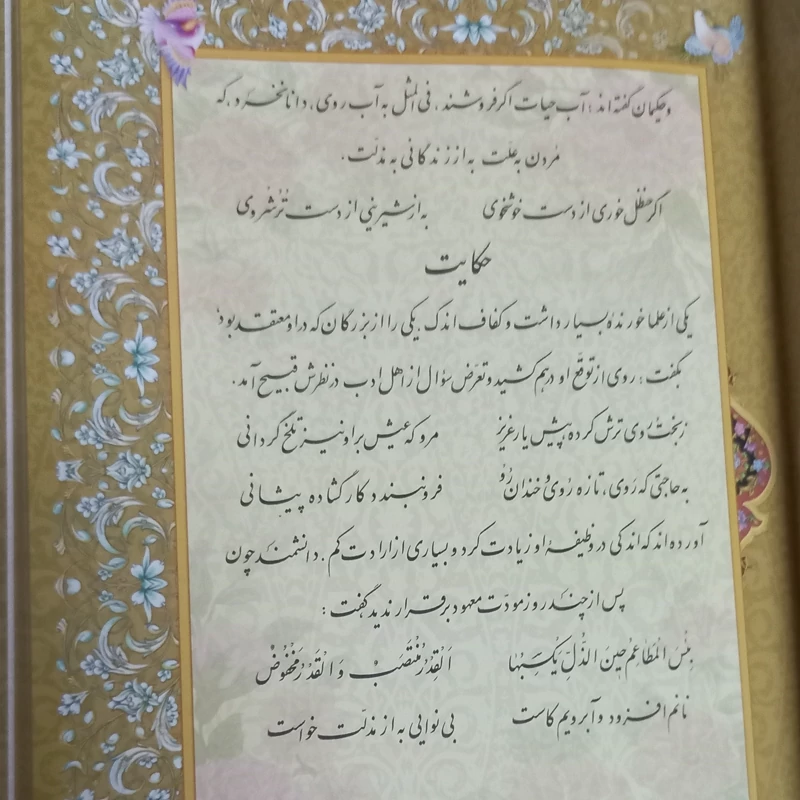 و حکیمان گفته‌اند : آب حیات اگر فروشند ، فی المثل به آب روی ، دانا نخرد ، که
مُردن به علّت به از زندگانی به مذلّت .
اگر حنظل خوری از دست خوشخوی به از شیرینی از دست تُرُشروی
حکایت
یکی از علما خورنده بسیار داشت و کفاف اندک . یکی را از بزرگان که در او معتقد بود
بگفت ؛ روی از توقّع او درهم کشید و تعرّض سؤال از اهل ادب در نظرش قبیح آمد .
زبخت روی ترش کرده پیش یار عزیز مرو که عیش بر او نیز تلخ گردانی
به حاجتی که رَوی ، تازه رُوی و خندان رُو فرو نبندد کار گشاده پیشانی
آورده‌اند که اندکی در وظیفهٔ او زیادت کرد و بسیاری از ارادت کم . دانشمند چون
پس از چند روز مودّت معهود برقرار ندید گفت :
بِئسَ المَطاعِمُ حینَ الذُّلِّ یَکسِبُها اَلقِدرُ مُنتَصَبٌ وَ القَدرُ مَخفُوضٌ
نانم افزود و آبرویم کاست بی نوایی به از مذلّت خواست